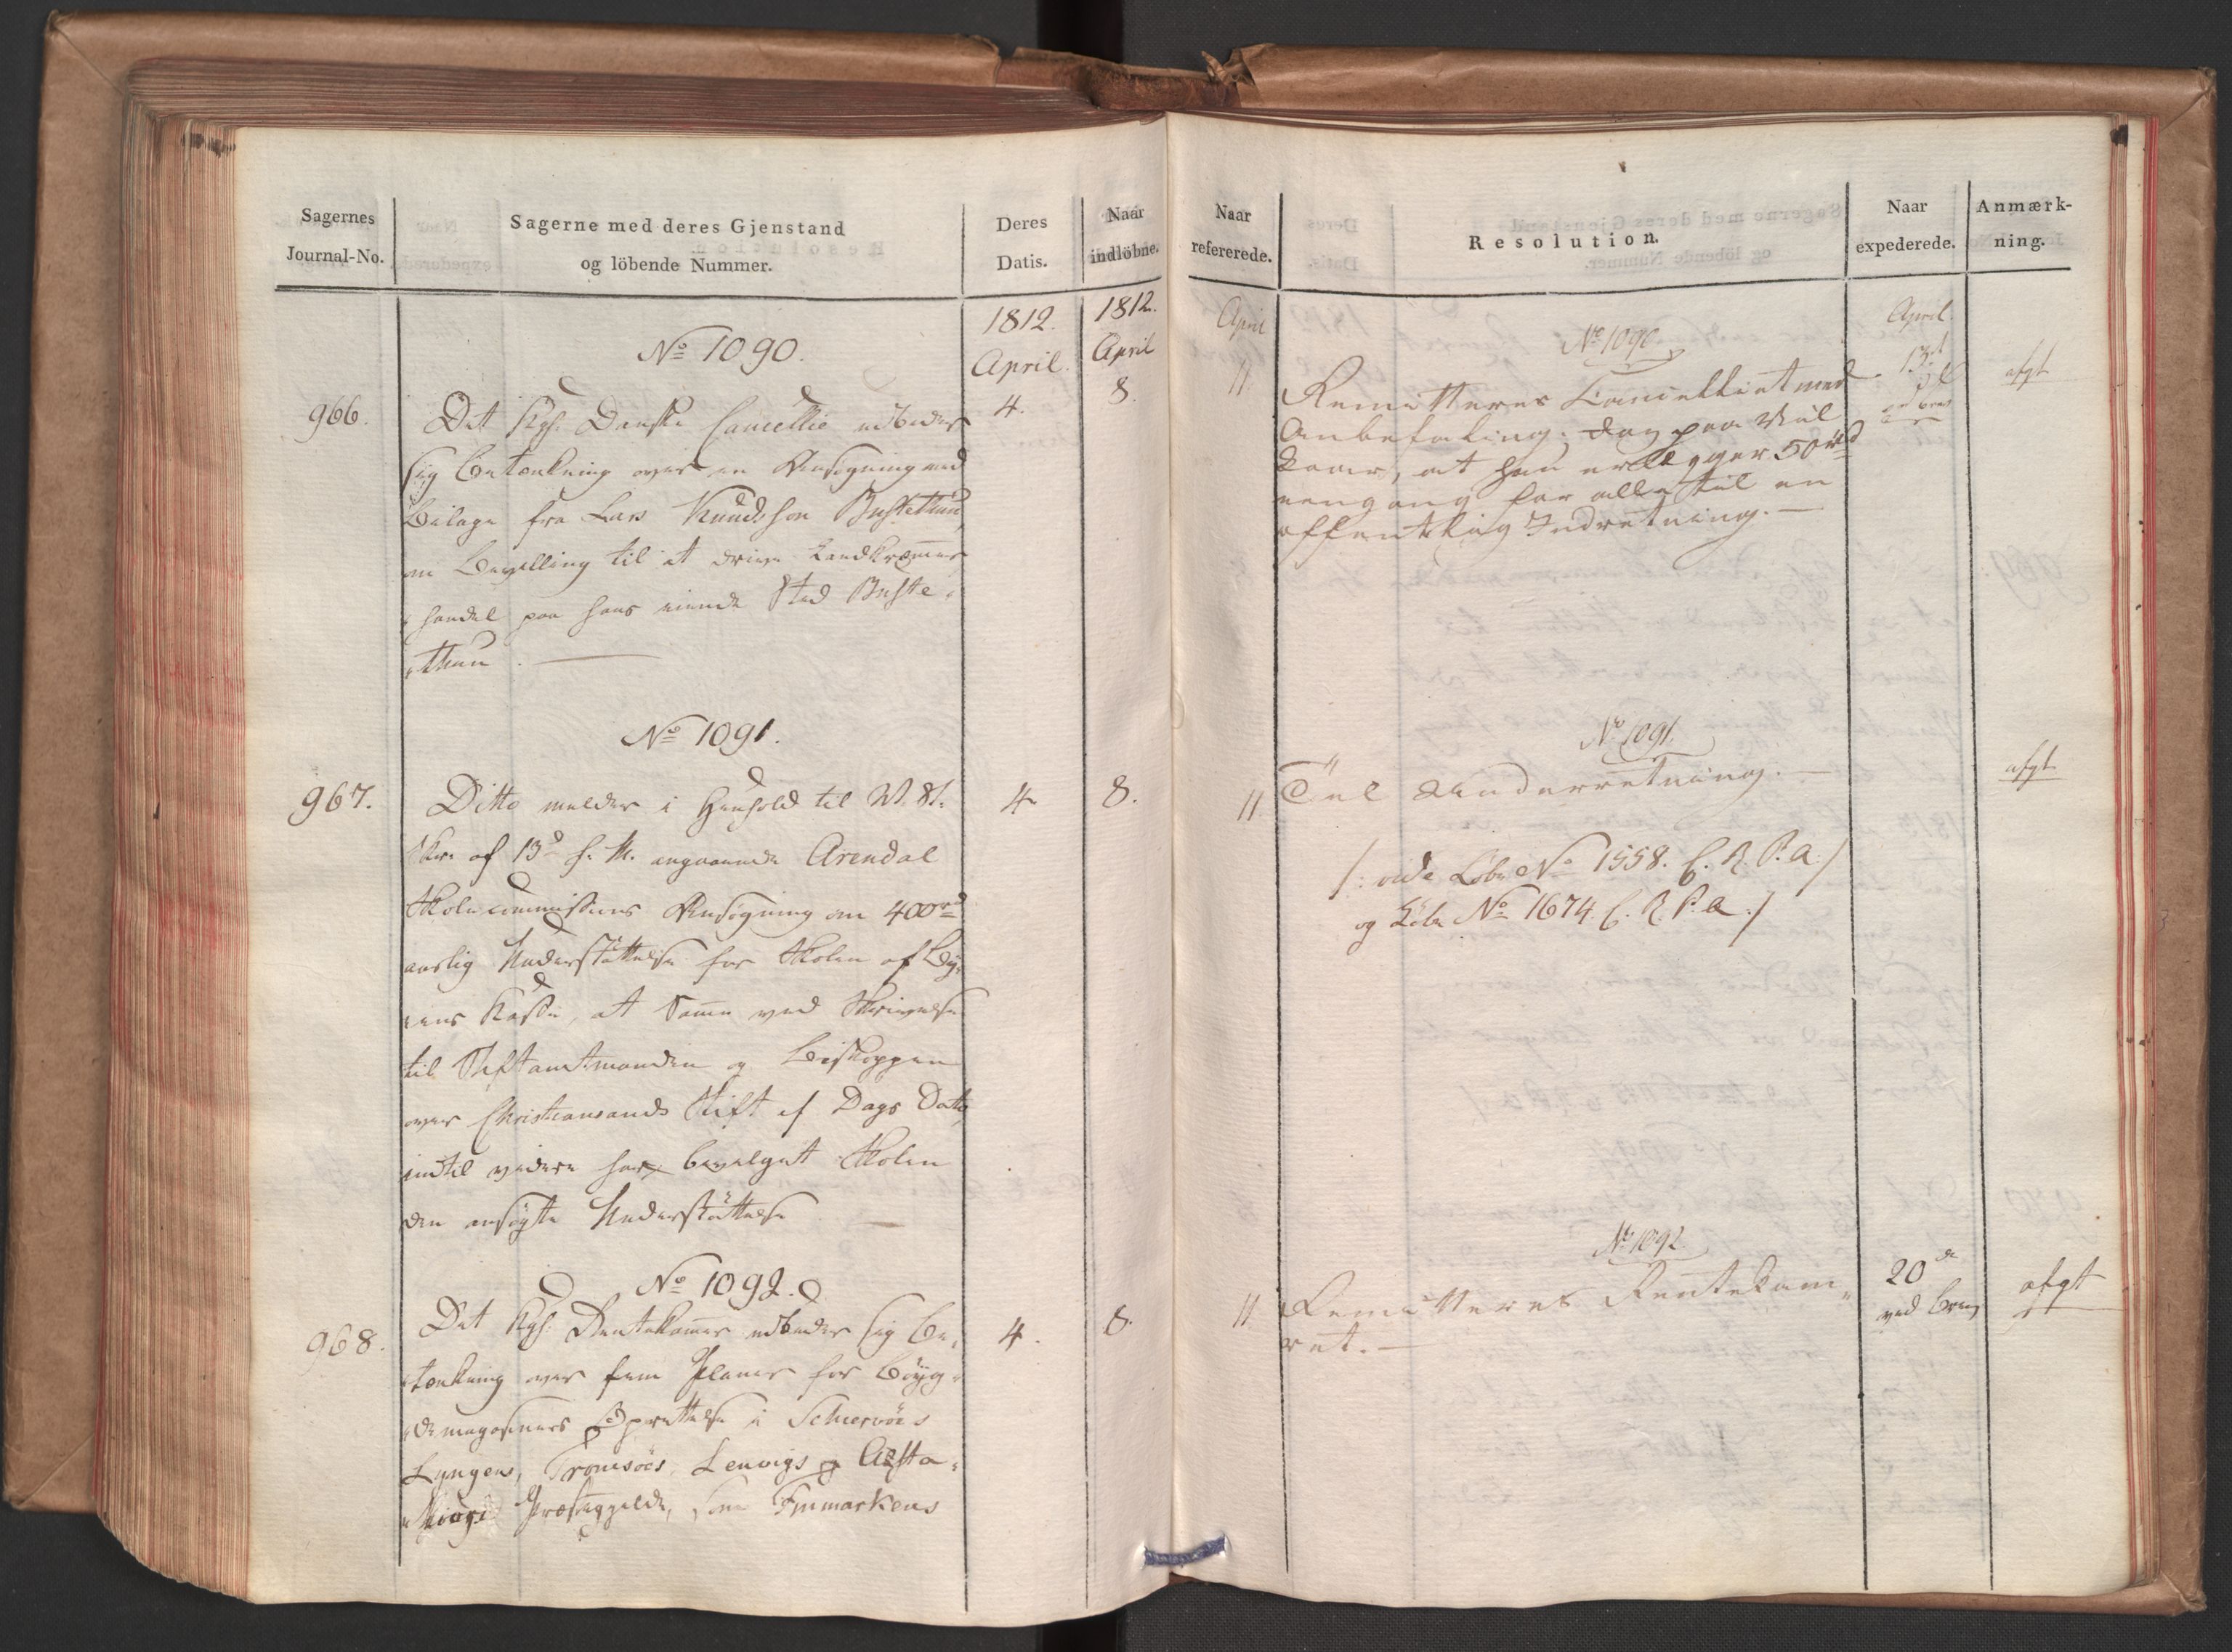 Sagernes
Journal-No.
Sagerne med deres Gjenstand
og löbende Nummer.
Deres
Datis.
Naar
indlöbne.
1812.
April.
1812.
April
No 1090.
966.
4.
8.
Det Kgl. Danske Cancellie udbeder
sig Betænkning over en Ansøgning med
Bilage fra Lars Knudsson Bustethun
om Bevilling til at drive Landkræmmer
handel paa hans eiende Sted Buste-
thun.
No 1091.
967.
4
8.
Ditto melder i Henhold til
af 13d f. M. angaaende Arendal
Skolecommissions Ansøgning om 400rd
aarlig Understøttelse for Skolen af By-
ens Kasse, at samme ved Skrivelse
til Stiftamtmanden og Biskoppen
over Christiansands Stift af Dags Dato
indtil videre har bevilget Skolen
den ansøgte Understøttelse
No 1092.
968.
4.
8.
Det Kgl. Rentekammer udbeder sig Be-
tænkning over fem Planer for Bøyg-
demagasiners Oprettelse i Schiervöes
Lyngens, Tromsöes, Lenvigs og Asta-
Præstegjelde, som Finmarkens
Naar
refererede.
Resolution.
Naar
expederede.
Anmærk-
ning.
April
April.
No 1090
11.
Remitteres Cancelliet med
Anbefaling; dog paa Vil
kaar, at han erlægger 50rd
eengang for alle til en
offentlig Indretning. —
13d
afgt
No 1091.
11
Til Underretning. —
afgt
/: vide Løbe No 1558. C. R. P. a :/
og Løbe No 1674. C. R. P. a :/
No 1092
11
Remitteres Rentekam-
ret. —
20de
ved Brev
afgt